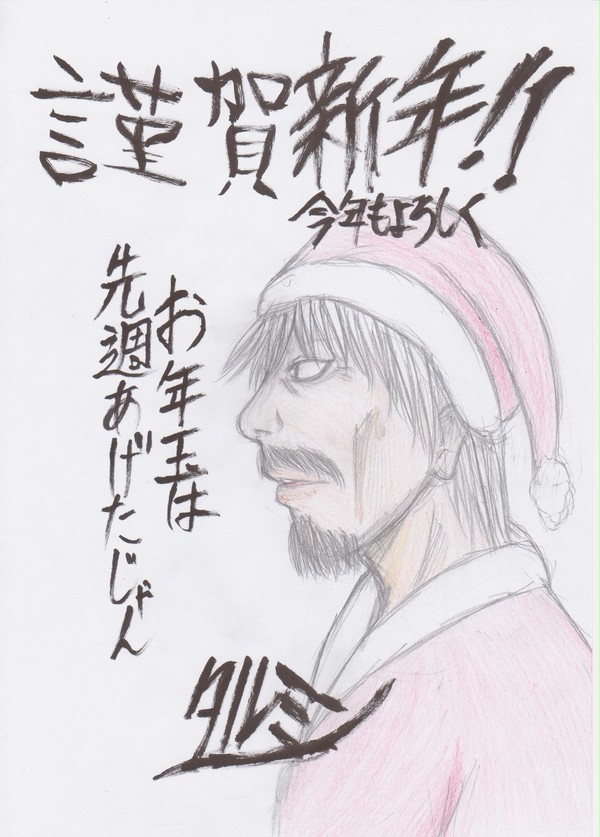 謹賀新年!!
今年もよろしく
お年玉は
先週あげたじゃん
タルミ